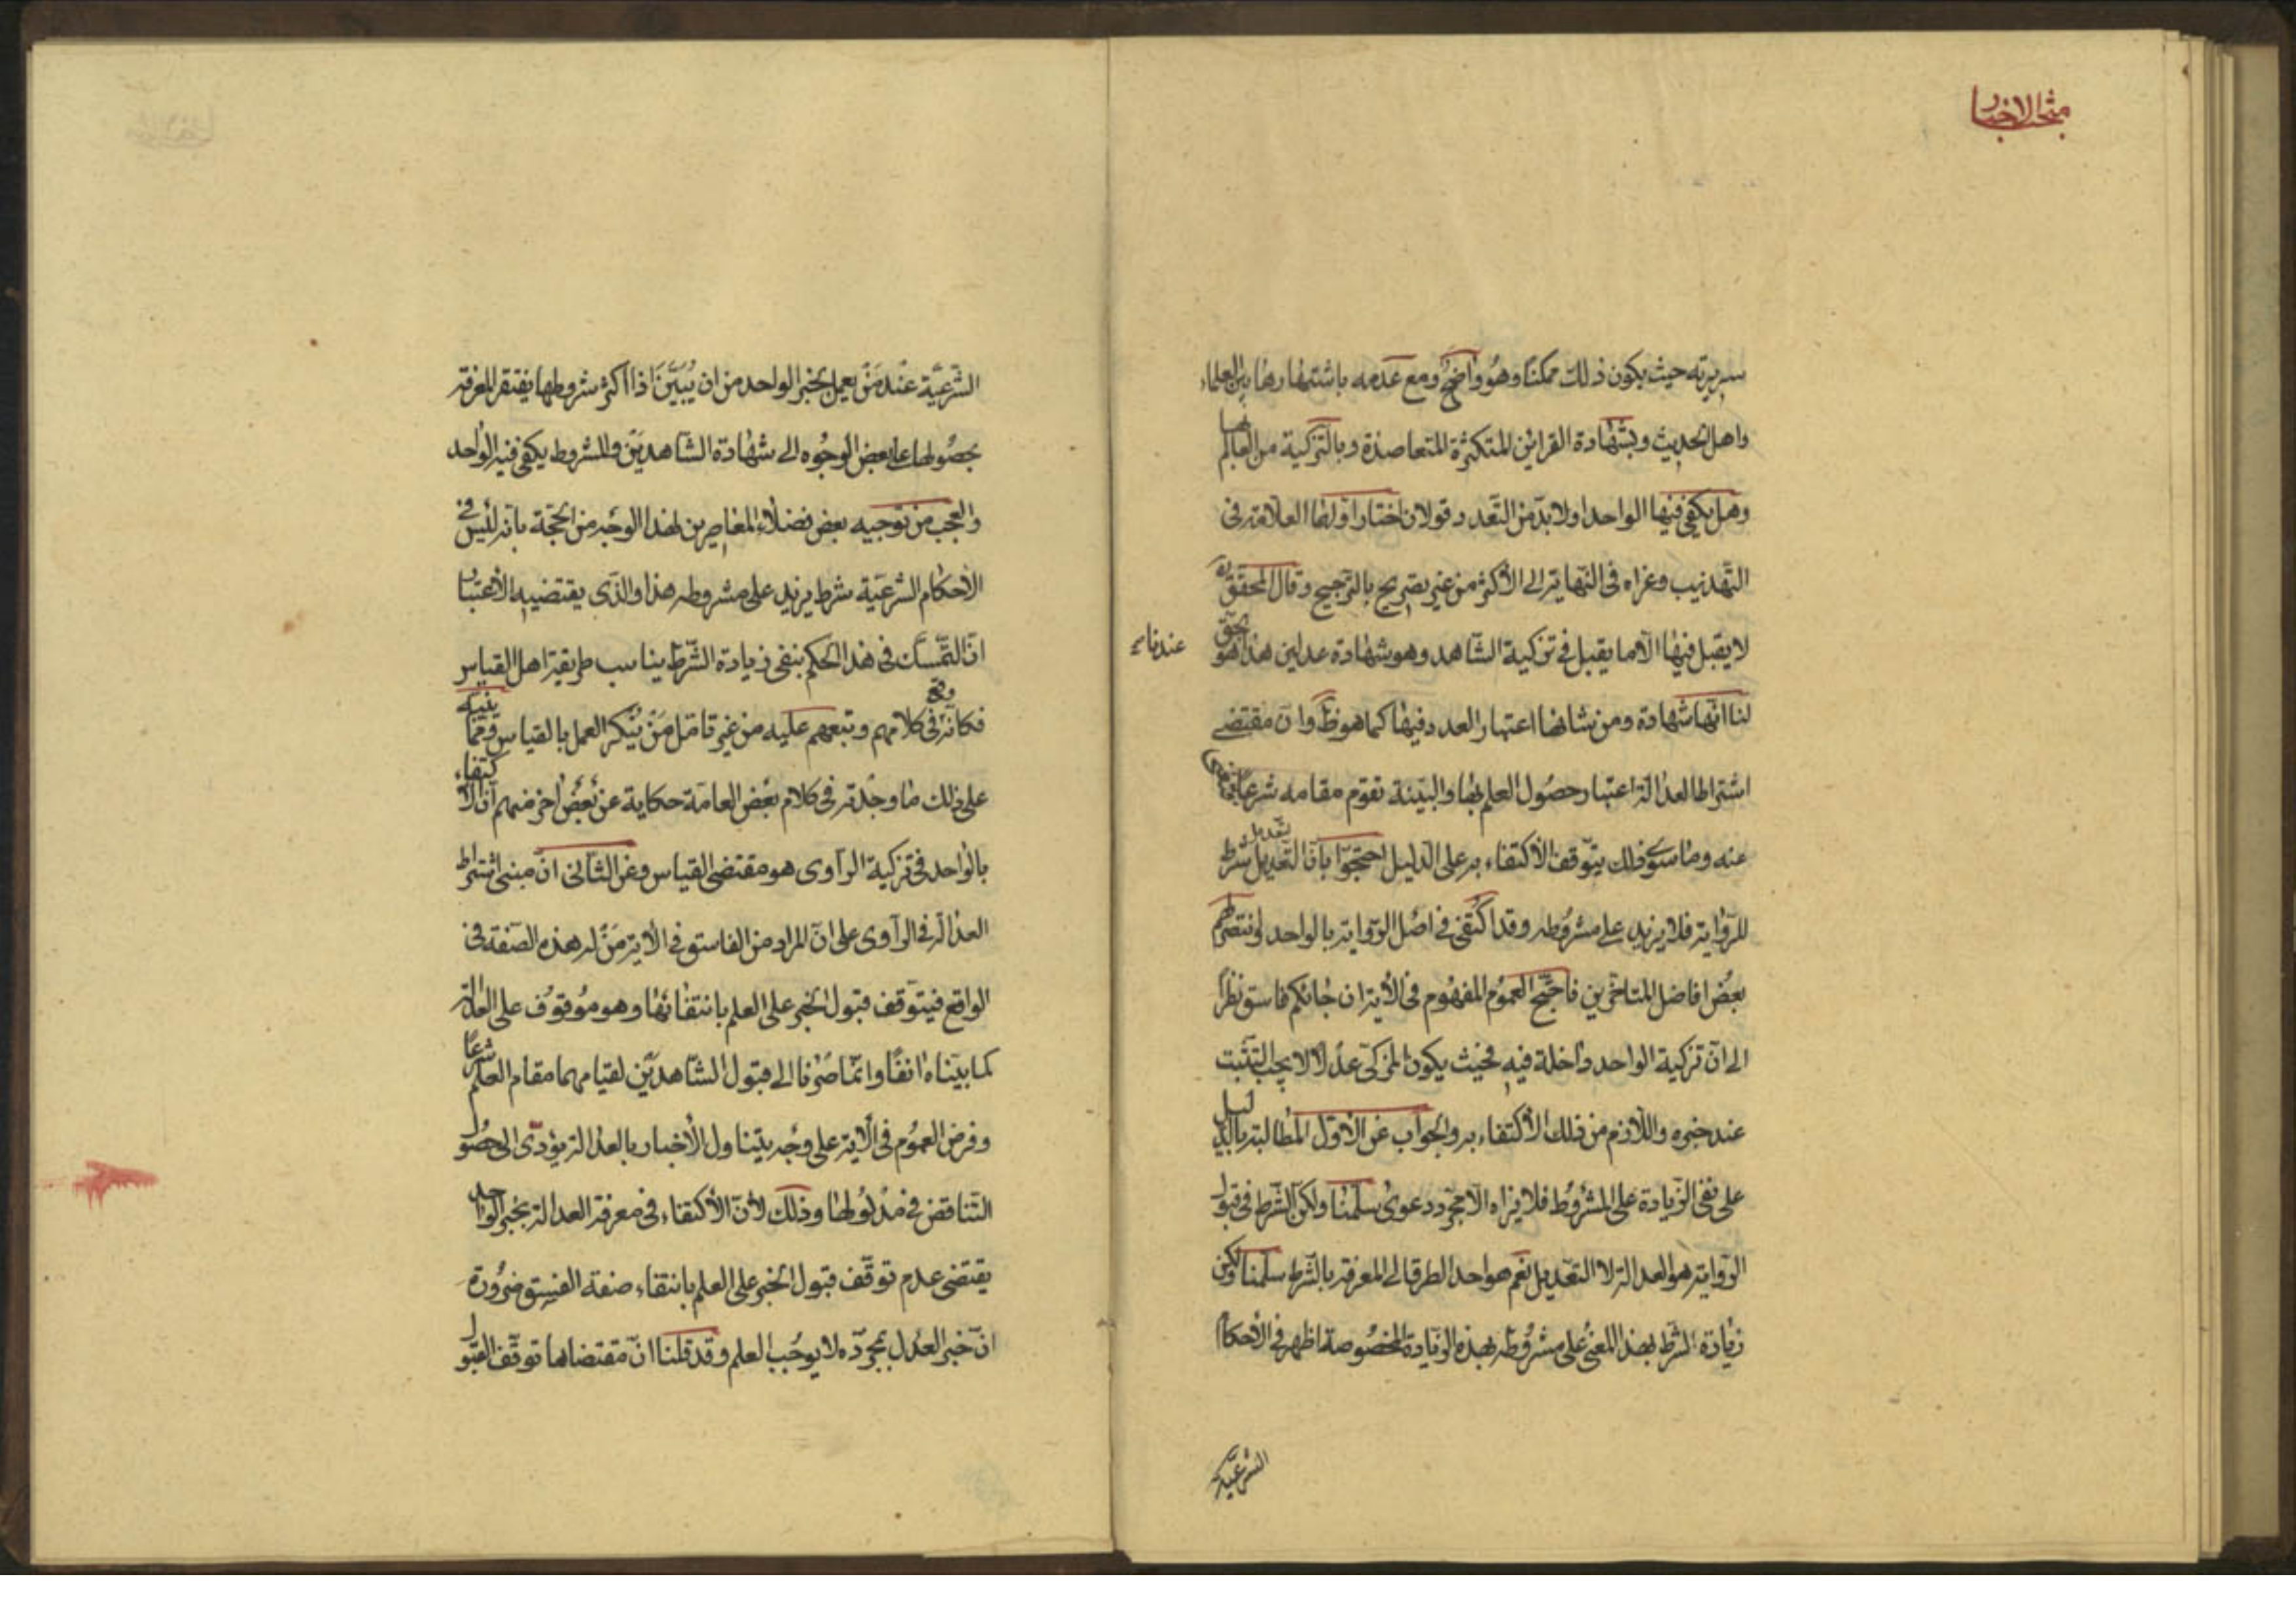 منتخب الاخبار
سريرته حيث يكون ذلك ممكنا وهو واضح ومع عدمه باشتهارها بين العلماء
واهل الحديث وبشهادة القرائن المتكثرة المتعاضدة وبالتزكية من العالم بها
وهل يكفي فيها الواحد او لا بد من التعدد قولان اختار اولهما العلامة في
التهذيب وعزاه في النهاية الى الاكثر من غير تصريح بالترجيح وقال المحقق ره
لا يقبل فيها الا ما يقبل في تزكية الشاهد وهو شهادة عدلين هذا هو الحق
عندنا
لنا انها شهادة ومن شانها اعتبار العدد فيها كما هو ظ وان مقتضى
اشتراط العدالة اعتبار حصول العلم بها والبينة تقوم مقامه شرعا
عنه وما سوى ذلك يتوقف الاكتفاء به على الدليل احتجوا بان التعديل شرط
للرواية فلا يزيد على مشروطه وقد اكتفى في اصل الرواية بالواحد
بعض افاضل المتاخرين فاحتج العموم المفهوم في الاية ان جائكم فاسق نظرا
الى ان تزكية الواحد داخلة فيه فحيث يكون المزكى عدلا لا يجب التثبت
عند خبره واللازم من ذلك الاكتفاء به والجواب عن الاول المطالبة بالدليل
على نفي الزيادة على المشروط فلا نراه الا مجرد دعوى سلمنا ولكن الشرط في قبول
الرواية هو العدالة لا التعديل نعم هو احد الطرق الى المعرفة بالشرط سلمنا ولكن
زيادة الشرط بهذا المعنى على مشروطه بهذه الزيادة المخصوصة اظهر في الاحكام
الشرعية
الشرعية عند من يعمل بخبر الواحد من ان يبين اذ اكثر شروطها يفتقر المعرفة
بحصولها على بعض الوجوه الى شهادة الشاهدين والمشروط يكفي فيه الواحد
والعجب من توجيه بعض فضلاء المعاصرين لهذا الوجه من الحجة بانه ليس في
الاحكام الشرعية شرط يزيد على مشروطه هذا والذي يقتضيه الاعتبار
ان التمسك في هذا الحكم بنفي زيادة الشرط يناسب طريقة اهل القياس
فكانه وقع في كلامهم وتبعهم عليه من غير تامل من ينكر العمل بالقياس ومما ينبه
على ذلك ما وجدته في كلام بعض العامة حكاية عن بعض اخر منهم ان الاكتفاء
بالواحد في تزكية الراوى هو مقتضى القياس وعن الثاني ان مبنى اشتراط
العدالة في الراوى على ان المراد من الفاسق في الاية من له هذه الصفة في
الواقع فيتوقف قبول الخبر على العلم بانتفائها وهو موقوف على العدالة
كما بيناه انفا وانما صرنا الى قبول الشاهدين لقيامهما مقام العلم شرعا
وفرض العموم في الاية على وجه يتناول الاخبار بالعدالة يؤدى الى حصول
التناقض في مدلولها وذلك لان الاكتفاء في معرفة العدالة بخبر الواحد
يقتضى عدم توقف قبول الخبر على العلم بانتفاء صفة الفسق ضرورة
ان خبر العدل بمجرده لا يوجب العلم وقد قلنا ان مقتضاها توقف القبول